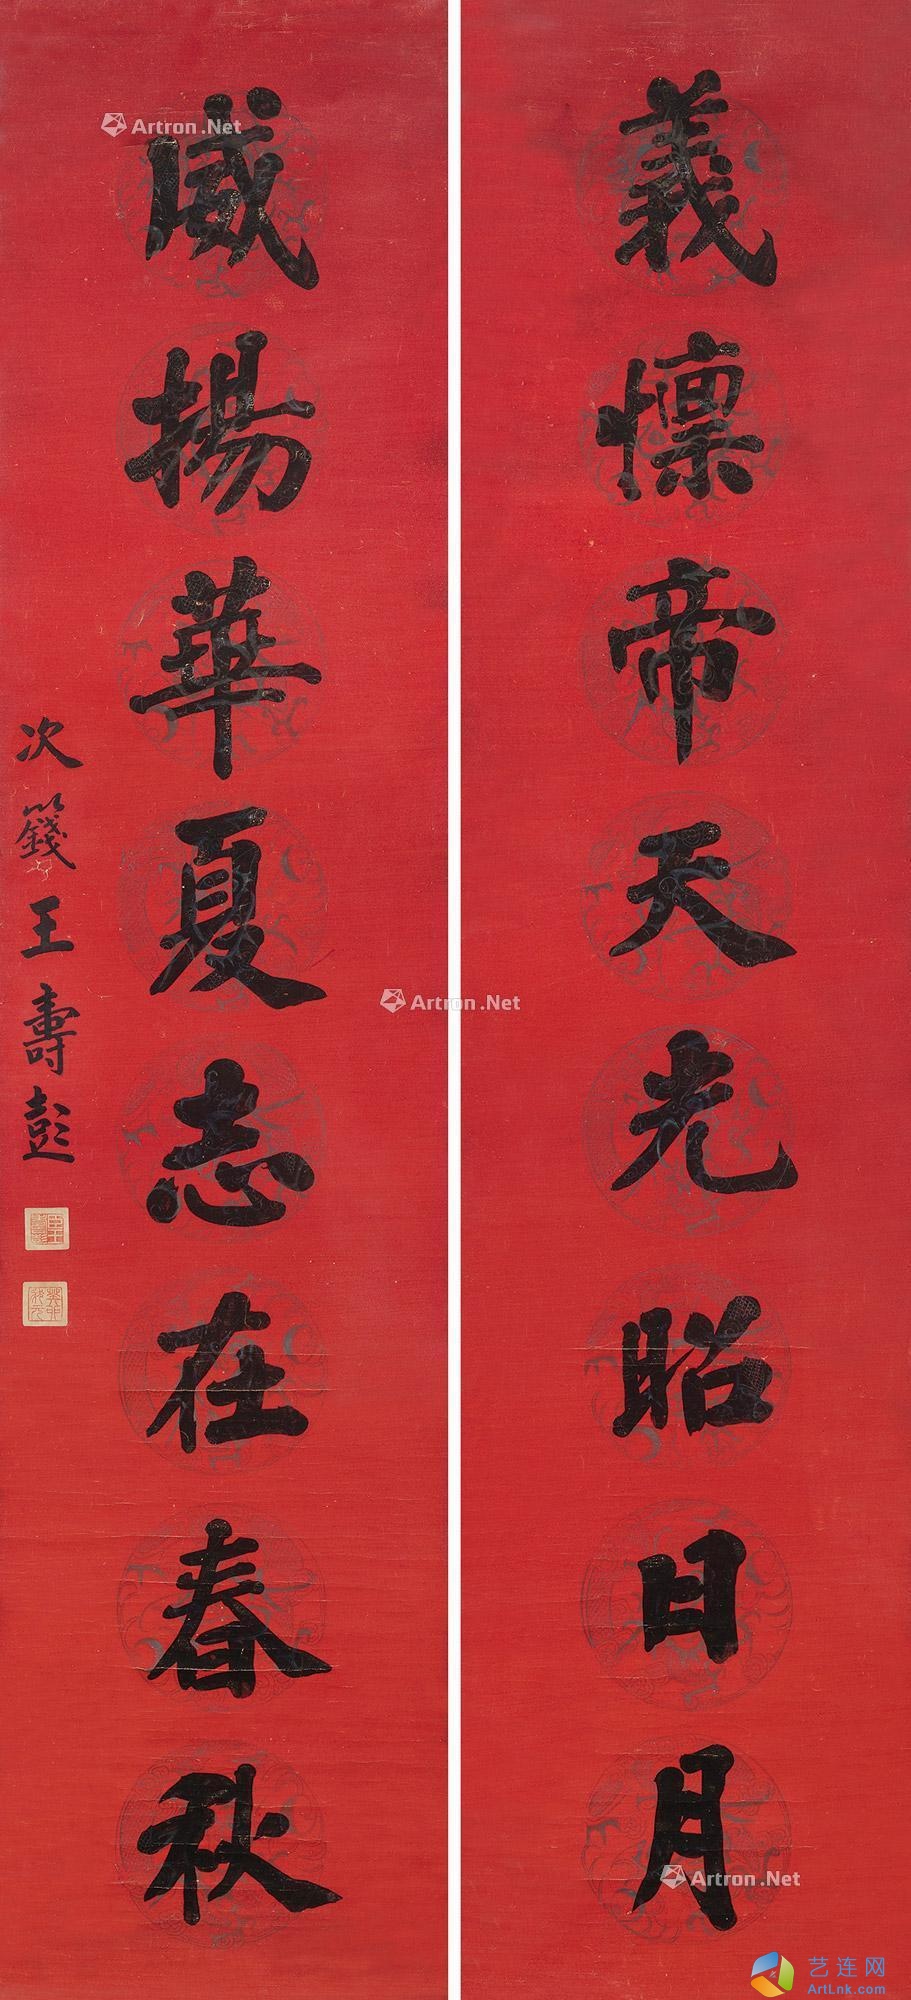 義懍帝天光昭日月
威揚華夏志在春秋
次籛王壽彭
臣王壽彭
癸卯狀元
Artron.Net
Artron.Net
Artron.Net
艺连网
ArtLnk.com